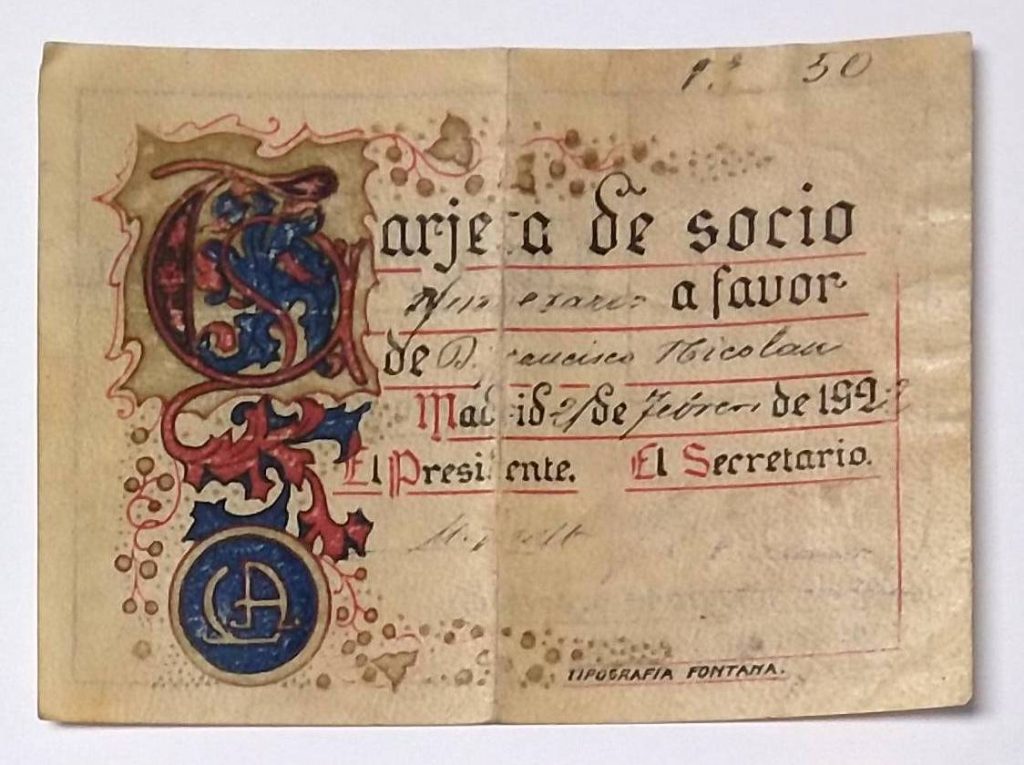 1.ª 50
Tarjeta de socio
Numerario a favor
de D. Francisco Nicolau
Madrid 21 de Febrero de 192
El Presidente. El Secretario.
LA
TIPOGRAFIA FONTANA.